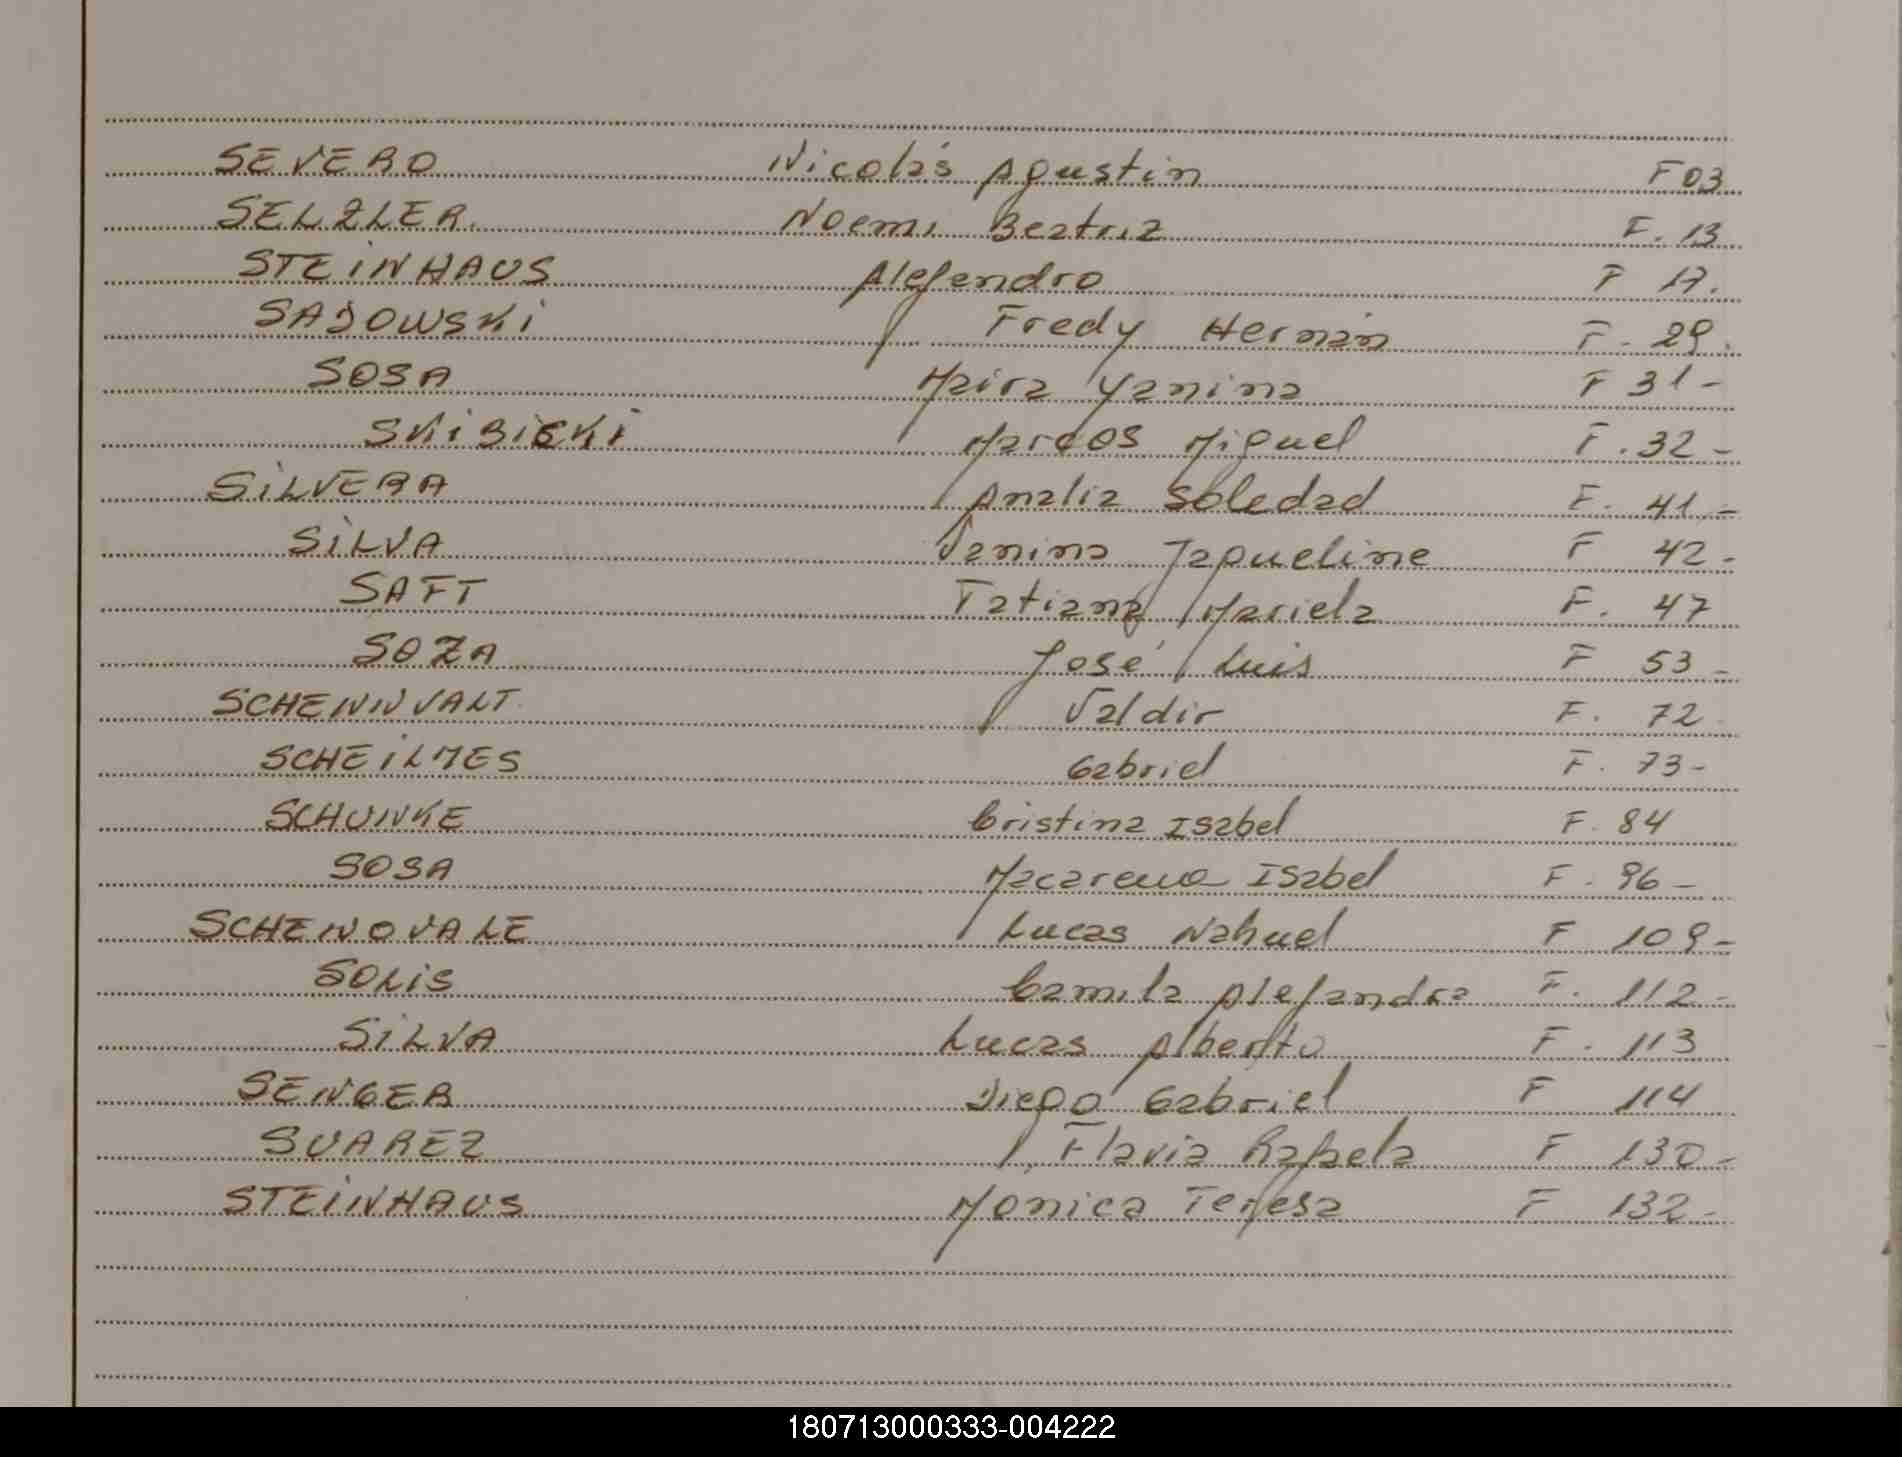 SEVERO Nicolás Agustin F 03
SELZLER. Noemi Beatriz F. 13
STEINHAUS Alejandro F 17.
SADOWSKI Fredy Hernán F. 29.
SOSA Maira Yanina F 31-
SKIBICKI Marcos Miguel F. 32-
SILVERA Analia Soledad F. 41-
SILVA Vanina Jaqueline F 42-
SAFT Tatiana Mariela F. 47
SOZA José Luis F 53-
SCHENNVALT Valdir F. 72
SCHEILMES Gabriel F. 73-
SCHUNKE Cristina Isabel F. 84
SOSA Macarena Isabel F. 96-
SCHENOVALE Lucas Nahuel F 109-
SOLIS Camila Alejandra F. 112-
SILVA Lucas Alberto F. 113
SENGER Diego Gabriel F 114
SUAREZ Flavia Rafaela F 130-
STEINHAUS Mónica Teresa F 132-
180713000333-004222